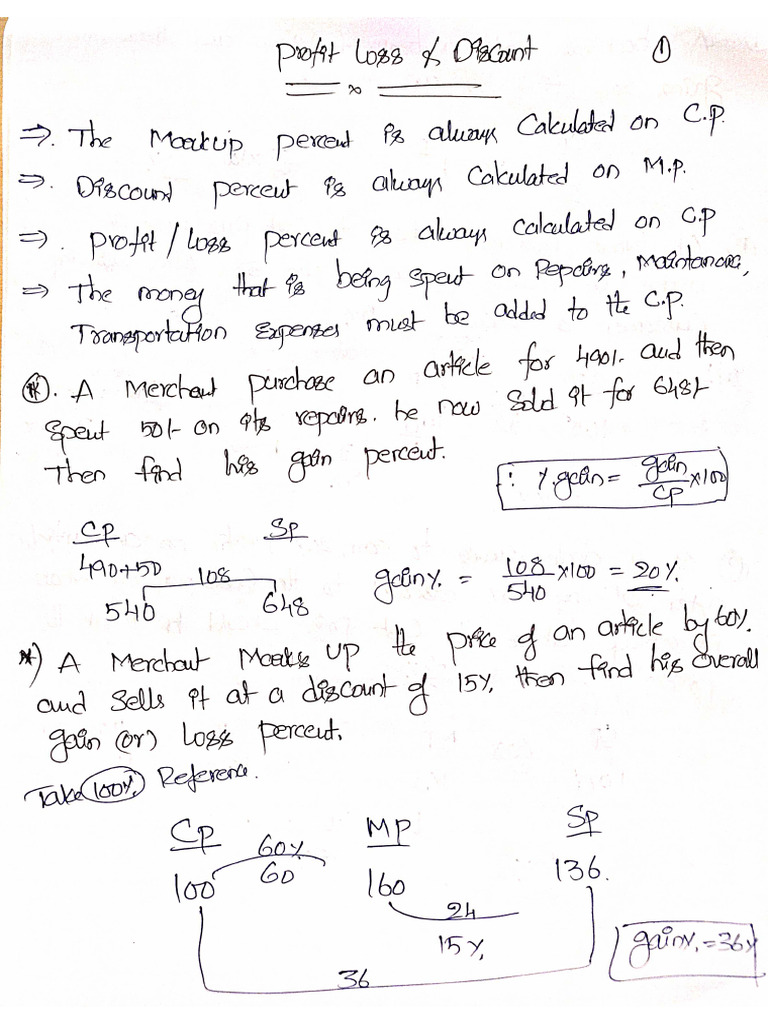 Profit Loss & Discount ①
⇒. The Markup percent is always Calculated on C.p.
⇒. Discount percent is always Calculated on M.p.
⇒. profit / Loss percent is always calculated on C.p
⇒ The money that is being spent on Repairs, Maintanance,
Transportation Expenses must be added to the C.p.
(*). A Merchant purchase an article for 490/- and then
spent 50/- on its repairs. he now Sold it for 648/-
Then find his gain percent.
∴ %gain = gain/CP ×100
Cp Sp
490+50 108
540 648
gain% = 108/540 ×100 = 20%.
*) A Merchant Marks UP the price of an article by 60%.
and sells it at a discount of 15%, then find his overall
gain (or) Loss percent.
Take 100% Reference.
Cp MP Sp
60%
100 60 160 136.
24
15%
36
gain% = 36%